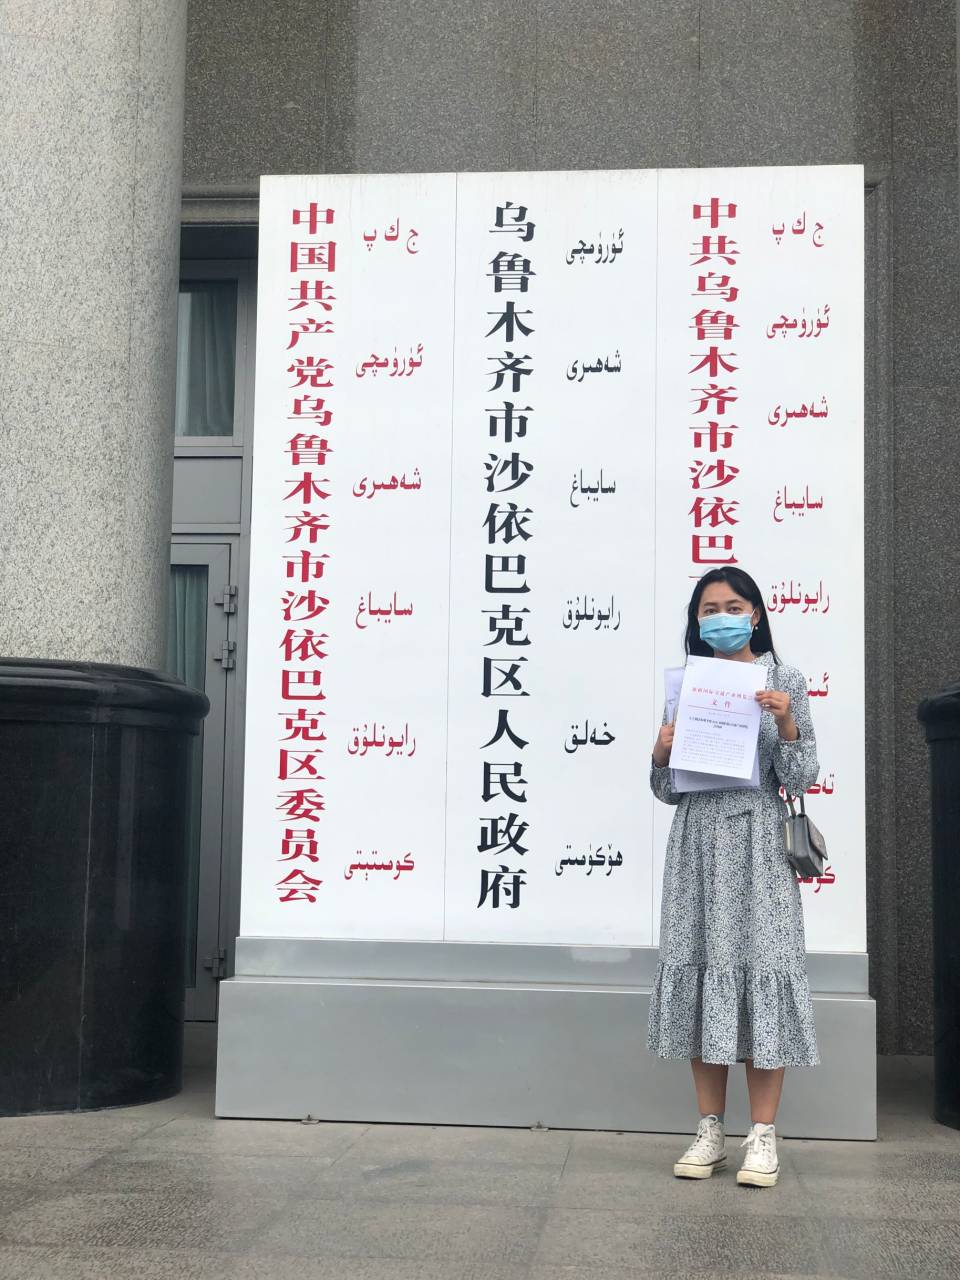 中国共产党乌鲁木齐市沙依巴克区委员会
ج ك پ
ئۈرۈمچى
شەھىرى
سايباغ
رايونلۇق
كومىتېتى
乌鲁木齐市沙依巴克区人民政府
ئۈرۈمچى
شەھىرى
سايباغ
رايونلۇق
خەلق
ھۆكۈمىتى
中共乌鲁木齐市沙依巴
ج ك پ
ئۈرۈمچى
شەھىرى
سايباغ
رايونلۇق
文件